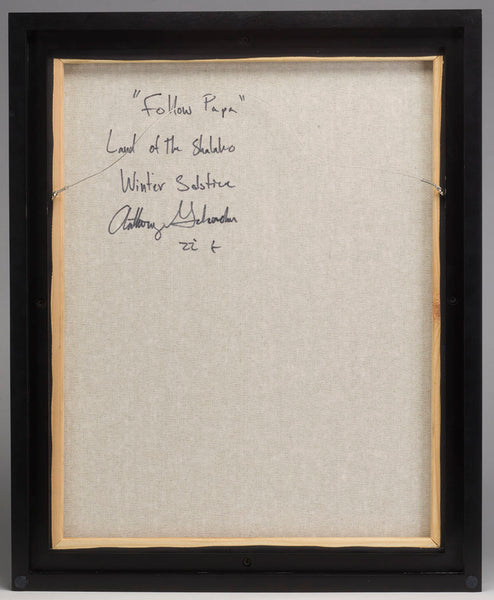 "Follow Papa"
Land of the Shalako
Winter Solstice
Anthony
22